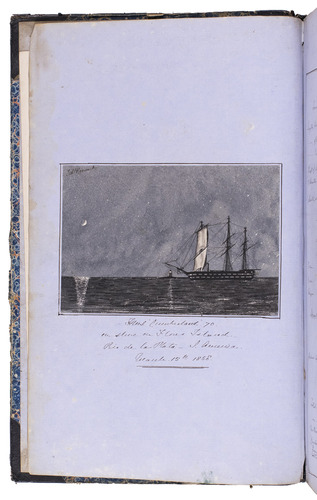 HMS Cumberland 70
on shore on Flores Island
Rio de la Plata - S. America.
March 15th 1855.